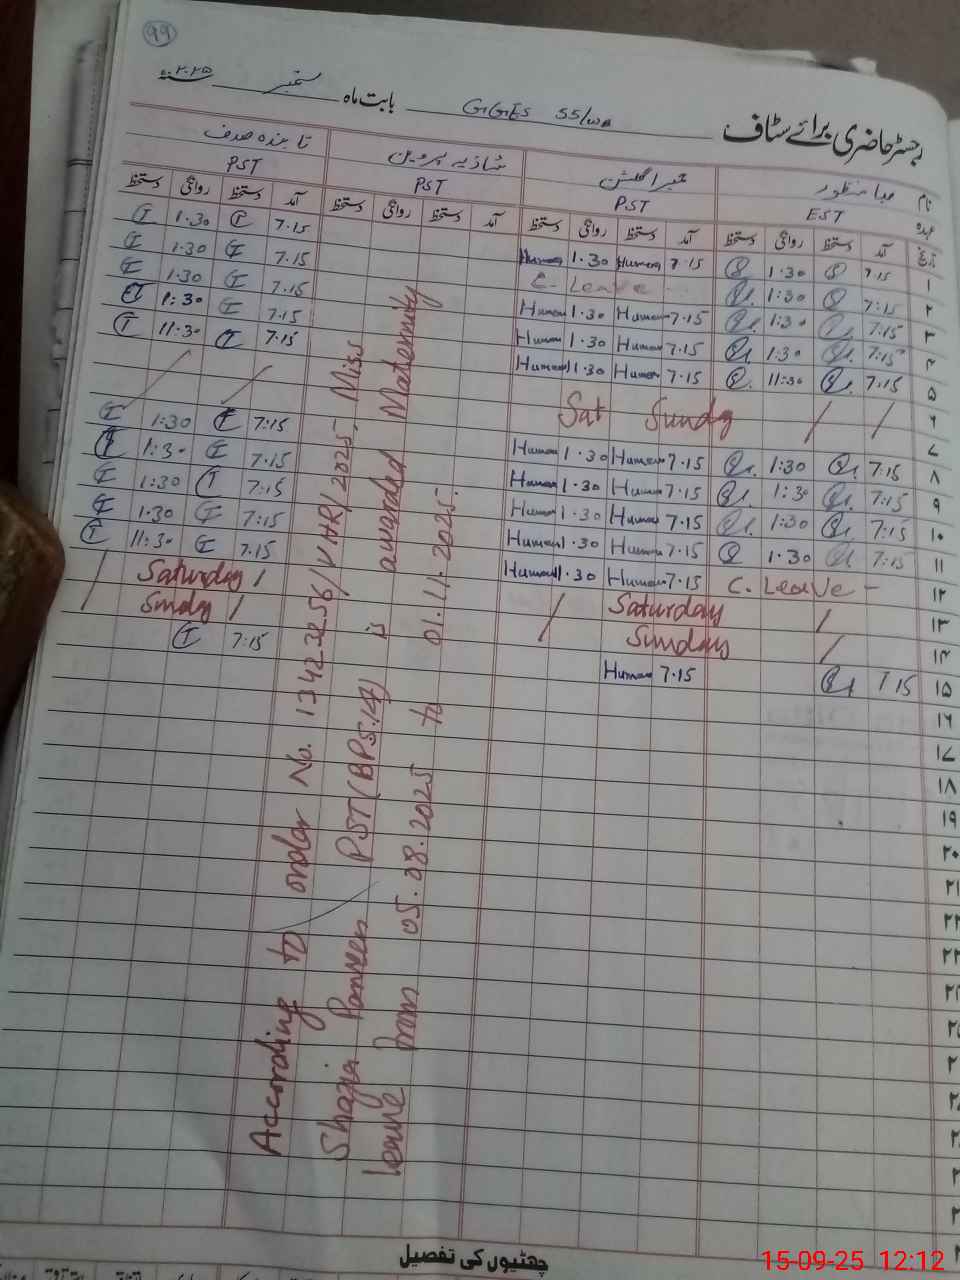 99
رجسٹر حاضری برائے سٹاف GGES 55/WB بابت ماہ ستمبر ۲۰۲۵
نام صبا منظور شازیہ پروین تابندہ صدف
عہدہ EST PST PST PST
تاریخ آمد دستخط روانگی دستخط آمد دستخط روانگی دستخط آمد دستخط روانگی دستخط آمد دستخط روانگی دستخط
۱ 7.15 1.30 7.15 Human 1.30 Human 7.15 1.30
۲ 7:15 1:30 C. Leave 7.15 1.30
۳ 7:15 1:30 7.15 Human 1.30 Human 7.15 1.30
۴ 7:15 1:30 7.15 Human 1.30 Human 7.15 1:30
۵ 7.15 11:30 7.15 Human 1.30 Human 7.15 11.30
۶ / / Sunday Sat / /
۷
۸ 7.15 1:30 7.15 Human 1.30 Human 7.15 1:30
۹ 7:15 1:30 7.15 Human 1.30 Human 7.15 1:30
۱۰ 7:15 1:30 7.15 Human 1.30 Human 7.15 1:30
۱۱ 7:15 1.30 7.15 Human 1.30 Human 7:15 1.30
۱۲ C. Leave - 7.15 Human 1.30 Human 7.15 11:30
۱۳ / Saturday / / Saturday /
۱۴ / Sunday / Sunday /
۱۵ 7 15 7.15 Human 7.15
۱۶
۱۷
۱۸
۱۹
۲۰
۲۱
۲۲
۲۳
According to order No. 13423256/VHR/2025, Miss
Shazia Parveen PST (BPS.14) is awarded Maternity
leave from 05.08.2025 to 01.11.2025.
چھٹیوں کی تفصیل
15-09-25 12:12